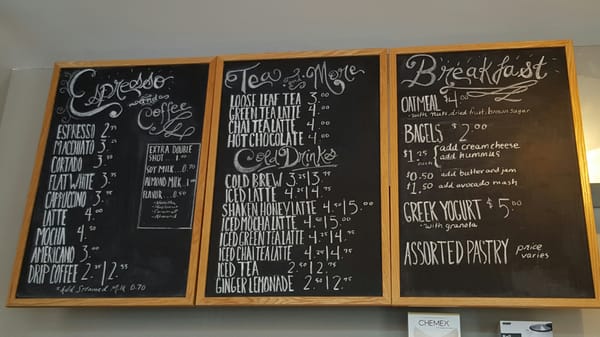 Espresso
and
Coffee
ESPRESSO 2.75
MACCHIATO 3.25
CORTADO 3.50
FLAT WHITE 3.75
CAPPUCCINO 3.75
LATTE 4.00
MOCHA 4.50
AMERICANO 3.00
DRIP COFFEE 2.25/2.55
*Add Steamed Milk 0.70
EXTRA DOUBLE
SHOT 1.00
SOY MILK 0.70
ALMOND MILK 1.00
FLAVOR 0.50
-Vanilla
-Hazelnut
-Caramel
-Almond
Tea and More
LOOSE LEAF TEA 3.00
GREEN TEA LATTE 4.00
CHAI TEA LATTE 4.00
HOT CHOCOLATE 4.00
Cold Drinks
COLD BREW 3.25/3.75
ICED LATTE 4.25/4.75
SHAKEN HONEY LATTE 4.50/5.00
ICED MOCHA LATTE 4.50/5.00
ICED GREEN TEA LATTE 4.25/4.75
ICED CHAI TEA LATTE 4.25/4.75
ICED TEA 2.50/2.75
GINGER LEMONADE 2.50/2.75
Breakfast
OATMEAL $4.00
-with nuts, dried fruit, brown sugar
BAGELS $2.00
$1.25 each { add cream cheese
add hummus
$0.50 add butter and jam
$1.50 add avocado mash
GREEK YOGURT $5.00
-with granola
ASSORTED PASTRY price
varies
CHEMEX